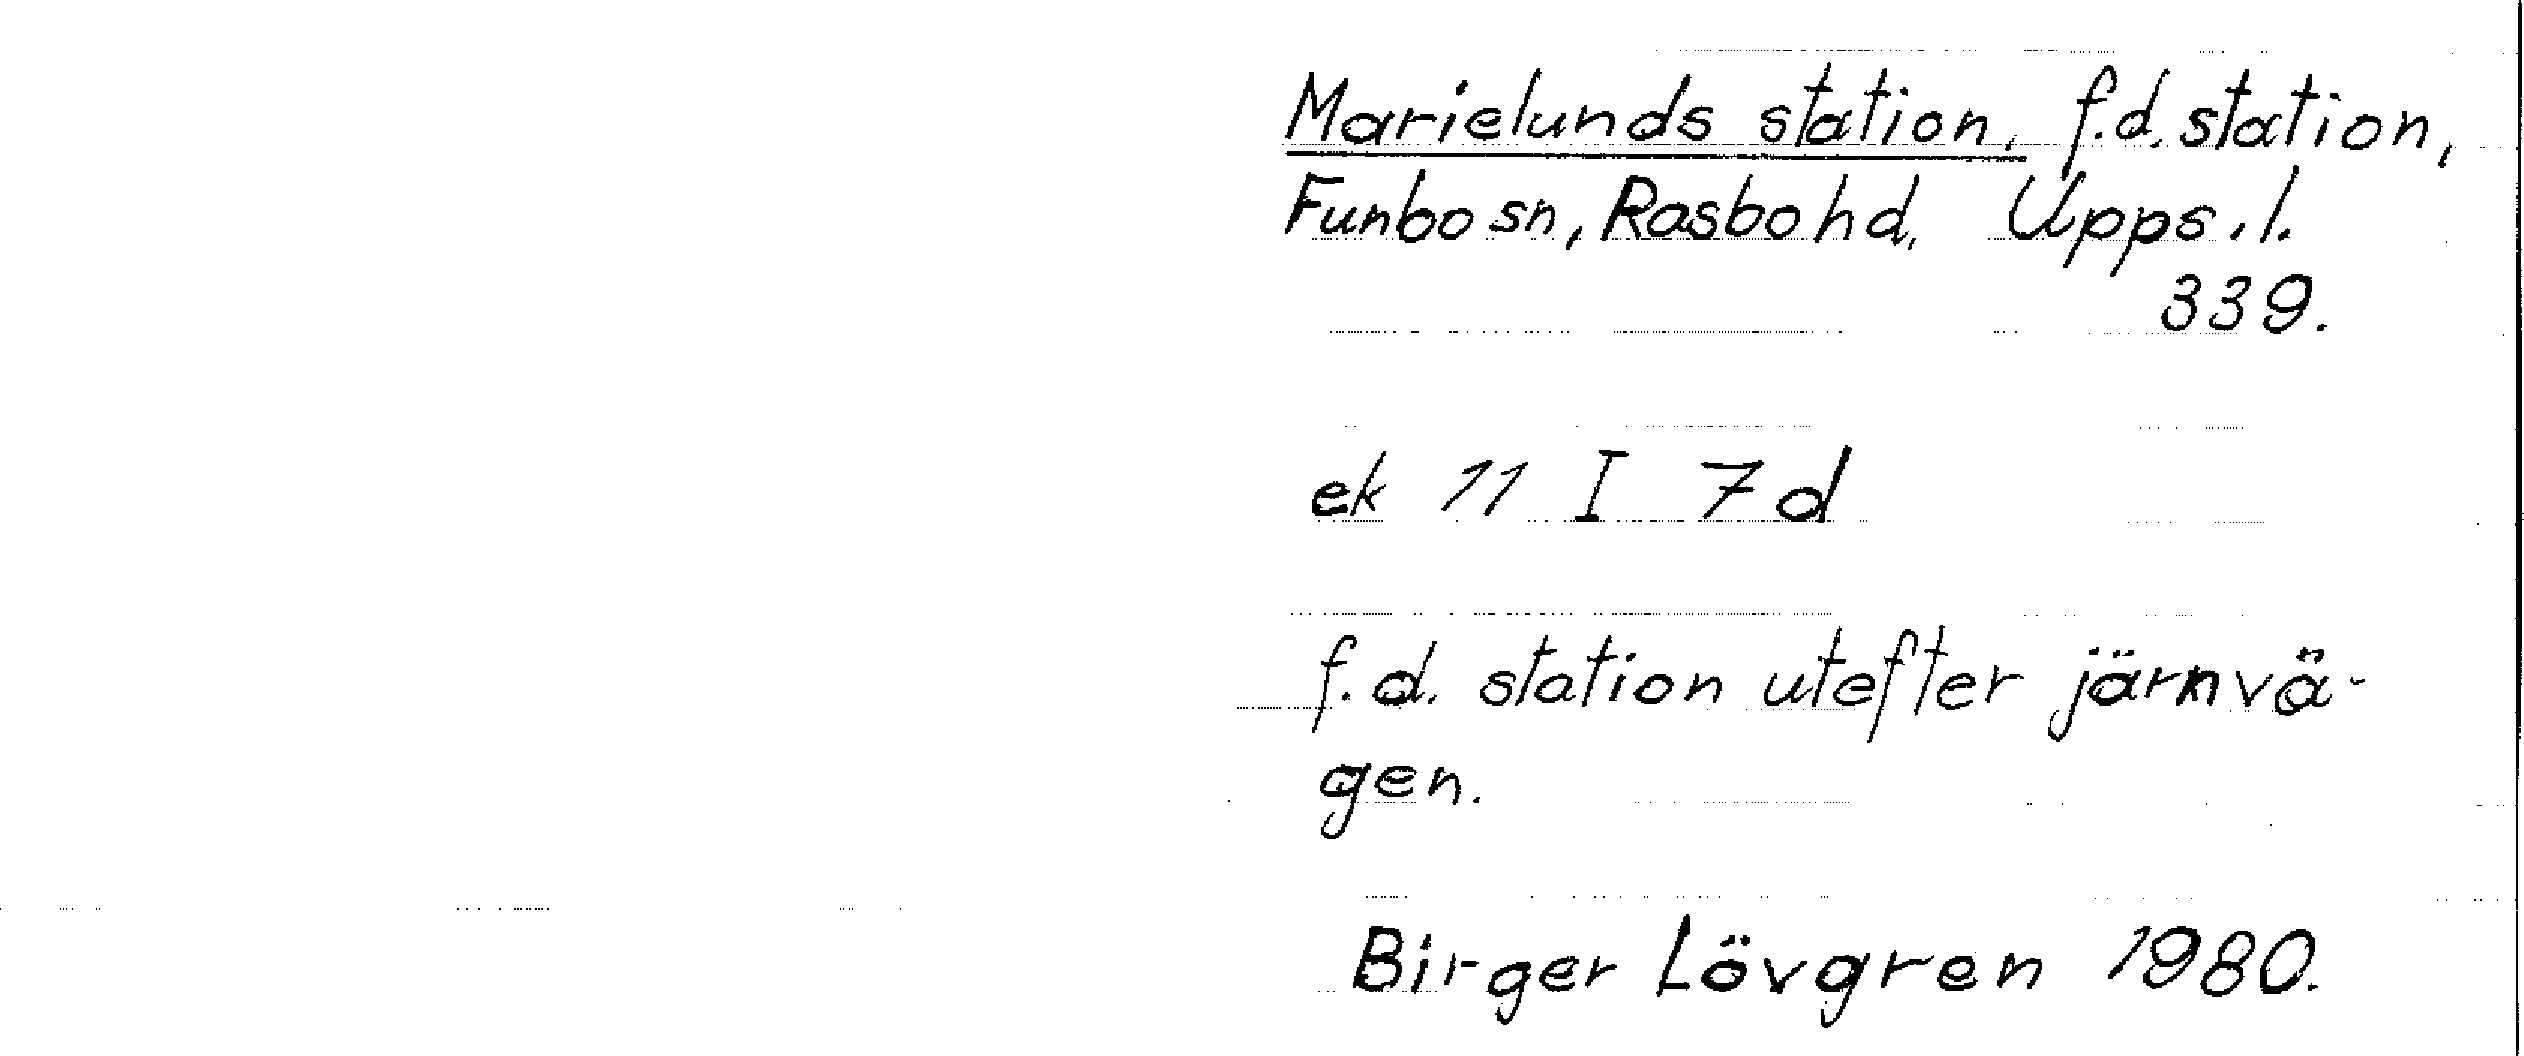 Marielunds station, f.d. station,
Funbo sn, Rasbo hd, Upps. l.
339.
ek 11 I 7d
f.d. station utefter järnvä-
gen.
Birger Lövgren 1980.